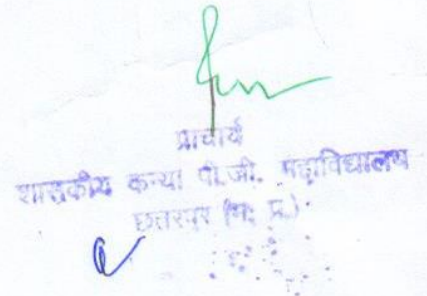 प्राचार्य
शासकीय कन्या पी.जी. महाविद्यालय
छतरपुर (म. प्र.)